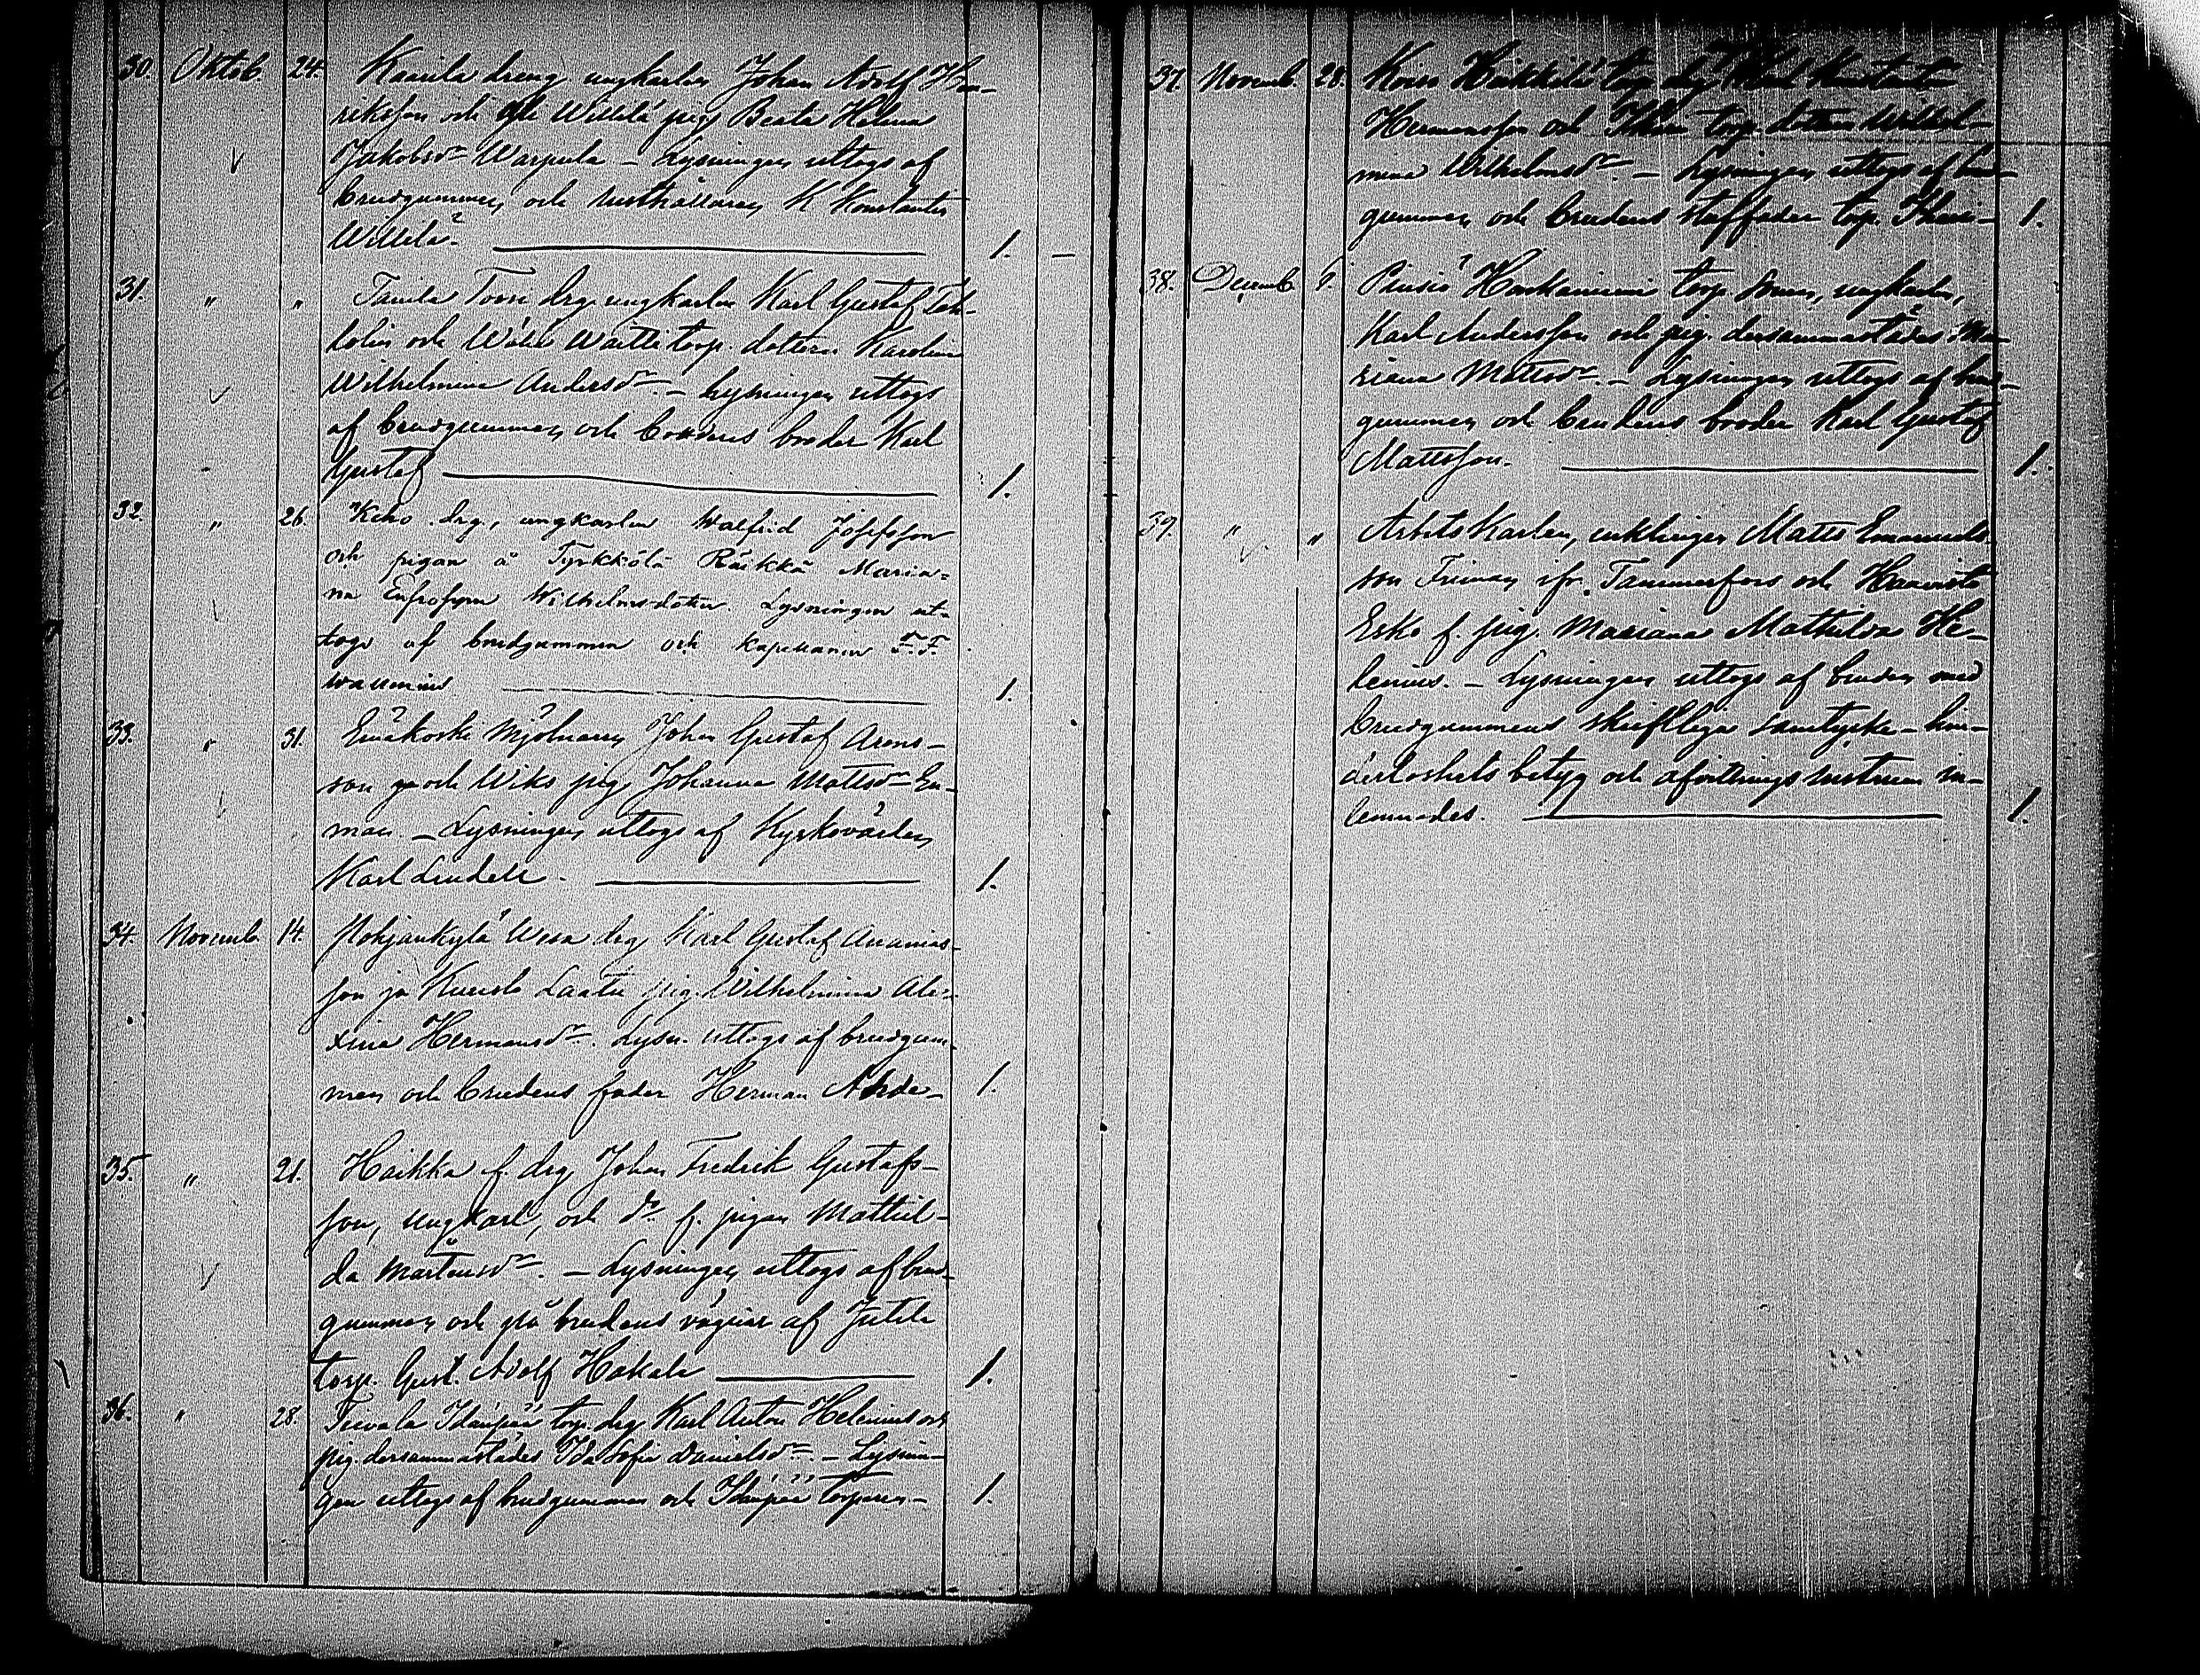 30. Oktob. 24. Kaarila dreng ungkarlen Johan Adolf Hen-
riksson och Willilä pig. Beata Helena
Jakobsdr Warpula – Lysningen uttogs af
brudgummen och rusthållaren K Konstantin
Willilä. 1. –
31. " " Tanila Torri drg. ungkarlen Karl Gustaf
och Waitti torp. dottern Karolina
Wilhelmina Andersdr. – Lysningen uttogs
af brudgummen och brudens broder Karl
Gustaf 1.
32. " 26. Keho drg., ungkarlen Walfrid Josefsson
och pigan å Tyrkkölä Räikkä Maria-
na Eufrosyna Wilhelmsdotter. Lysningen ut-
togs af brudgummen och kapellanen F. F.
Wallenius 1.
33. " 31. Mjölnaren Johan Gustaf Arons-
son och Wiks pig. Johanna Mattsdr En-
man. – Lysningen uttogs af Kyrkovärden
Karl Lindell. 1.
34. Novemb. 14. Pohjankylä Wesa drg. Karl Gustaf Ananias-
son ja Laata pig. Wilhelmina Ale-
xina Hermansdr. Lysn. uttogs af brudgum-
men och brudens fader Herman Ahde – 1.
35. " 21. Haikka f. drg. Johan Fredrik Gustafs-
son, ungkarl, och dr f. pigan Mathil-
da Mårtensdr. – Lysningen uttogs af brud-
gummen och på brudens vägnar af Jutila
torp. Gust. Adolf Hakala 1.
36. " 28. torp. drg Karl Anton Helenius och
pig. dersammastädes Ida Sofia Danielsdr. – Lysnin-
gen uttogs af brudgummen och torparen – 1.
37. Novemb. 28. torp. drg. Karl Konstantin
Hermansson och torp. dottern Wilhel-
mina Wilhelmsdr. – Lysningen uttogs af brud-
gummen och brudens stuffader torp. 1.
38. Decemb. 9. Pinsiö torp. ungkarlen,
Karl Andersson och pig. dersammastädes Ma-
riana Mattsdr. – Lysningen uttogs af brud-
gummen och brudens broder Karl Gustaf
Mattsson. 1.
39. " " Arbets Karlen, enklingen Matts Emanuels-
son Friman ifr. Tammerfors och Haavisto
Esko f. pig. Mariana Mathilda He-
lenius. – Lysningen uttogs af bruden med
brudgummens skriftliga samtycke – hin-
derloshets betyg och afvittrings instrum. in-
lemnades. 1.